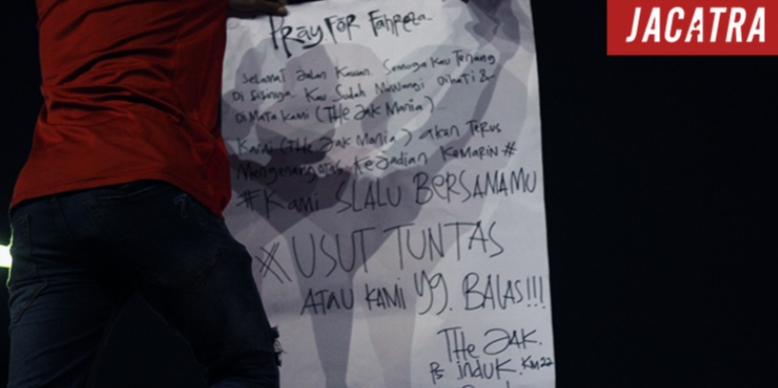 JACATRA
Pray For Fahreza..
Selamat Jalan Kawan. Semoga Kau Tenang
Di Sisinya. Kau Sudah Mewangi Dihati &
Dimata Kami (THe Jak Mania)
Kami (THe Jak Mania) akan Terus
Kejadian Kemarin #
#Kami SLALU BERSAMAMU
USUT TUNTAS
ATAU KAMI yg. BALAS!!!
THe Jak.
Ps induk. Km22